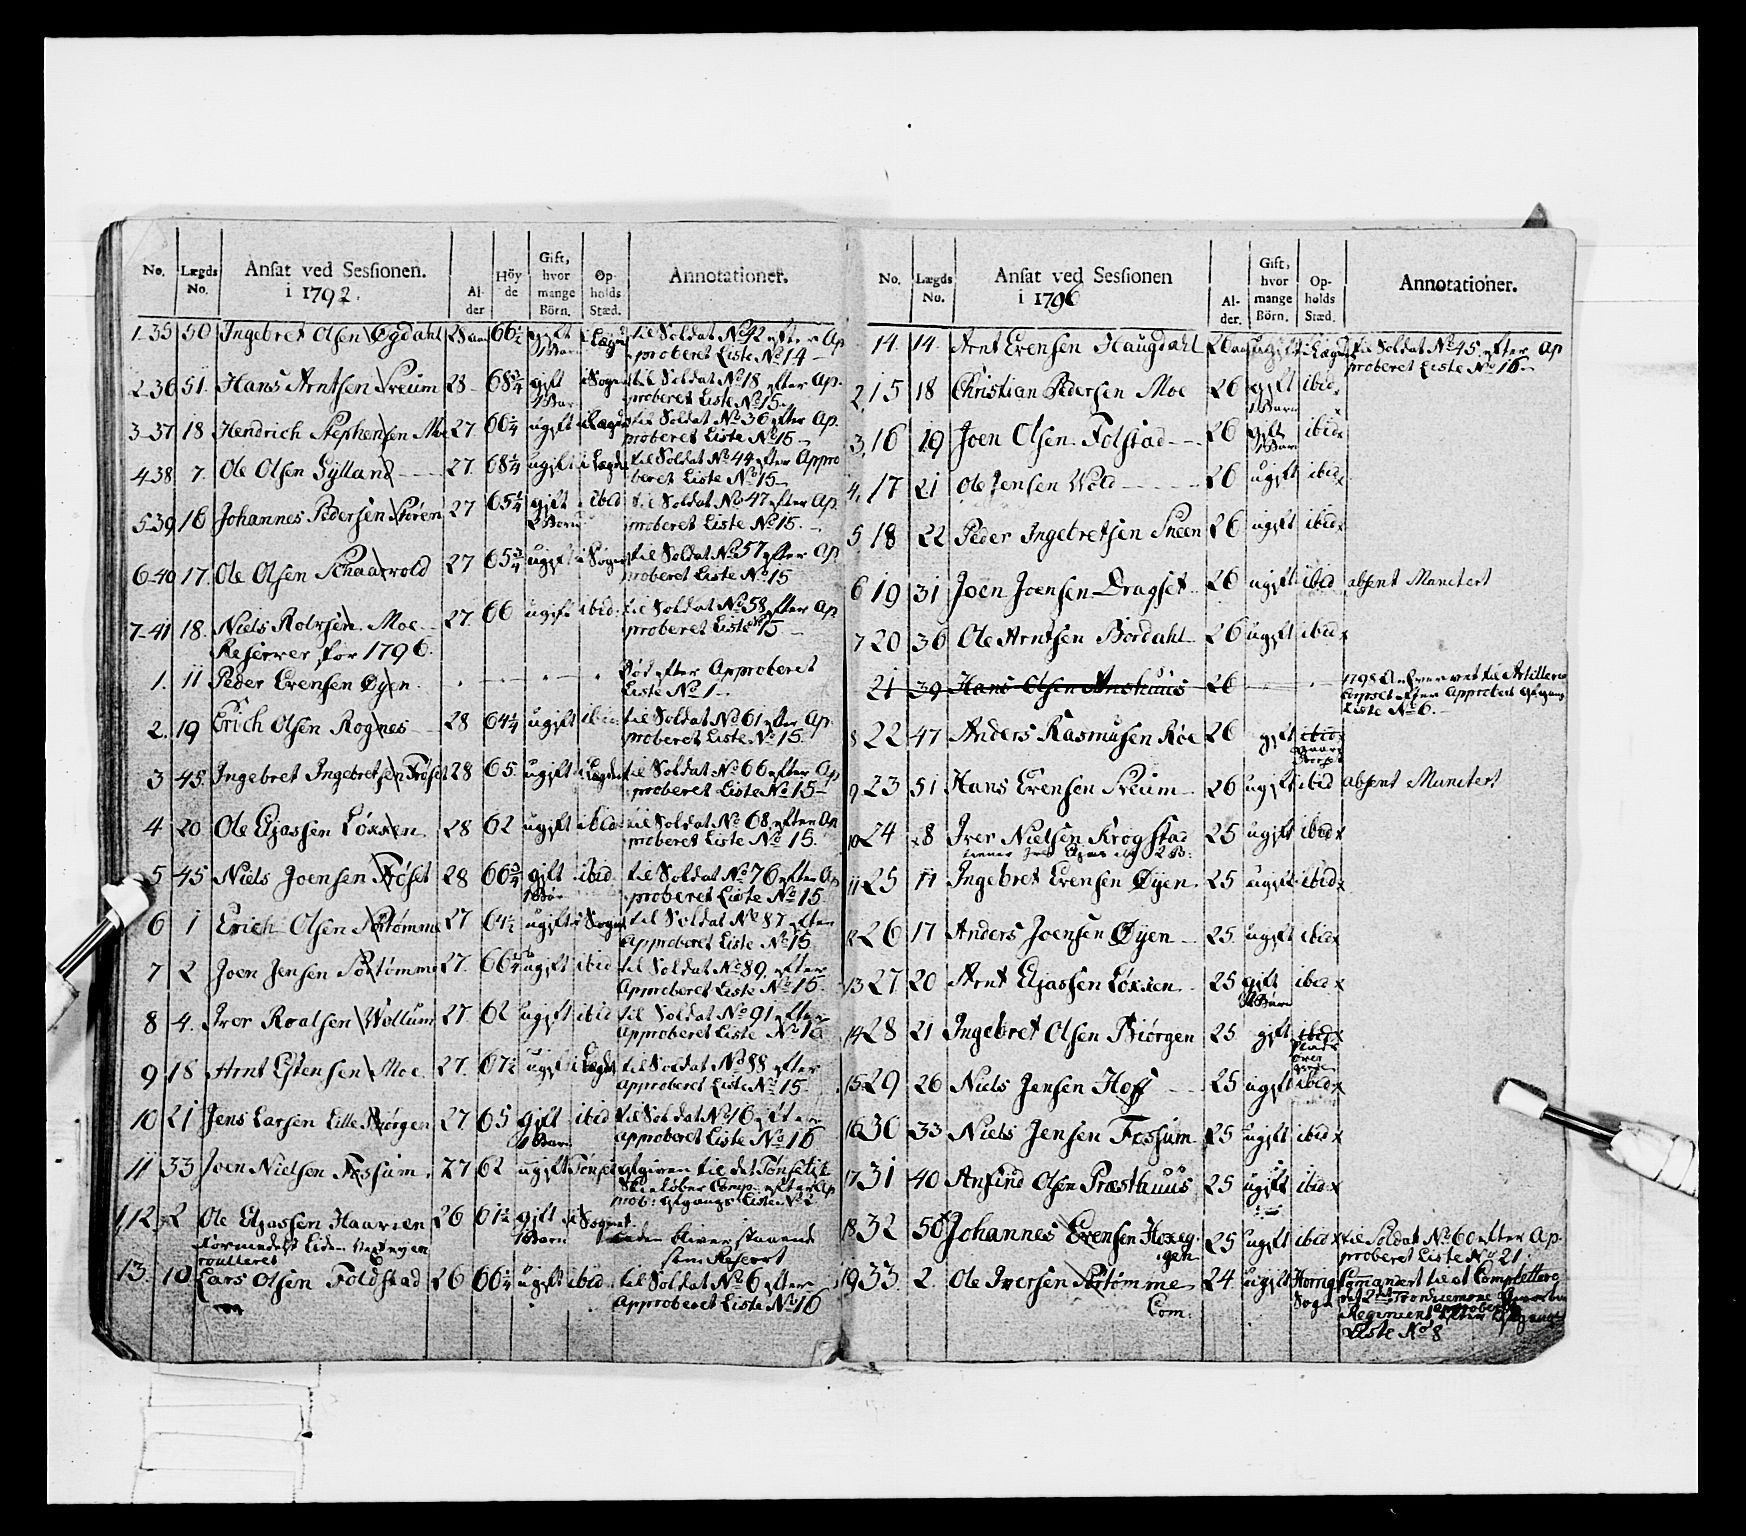 No. Lægds No. Ansat ved Sessionen. i 1792. Alder Höyde Gift, hvor mange Börn. Opholds Stæd. Annotationer.
1-35 50 Ingebret Olsen Øgdahl 28 aar 66½ gift 1 Barn i Lægd til Soldat No 42 efter Ap
proberet Liste No 14
2-36 51. Hans Arntsen Sneum 28 68¾ gift 1 Barn i Sogn til Soldat No 18 efter Ap
proberet Liste No 15.
3-37 18 Hendrich Stephensen Moe 27 66¼ ugift i Lægd til Soldat No 36 efter Ap
proberet Liste No 15
4-38 7. Ole Olsen Gylland 27. 68¼ ugift i Lægd til Soldat No 44 efter Appro
beret Liste No 15
5-39 16 Johannes Pedersen Støren 27 65¼ gift 2 Børn ibid til Soldat No 47 efter Ap
proberet Liste No 15.
6-40 17. Ole Olsen Schaarvold 27 65¾ ugift i Sogn til Soldat No 57 efter Ap
proberet Liste No 15
7-41 18. Niels Rolvsen Moe 27 66 ugift ibid. til Soldat No 58 efter Ap
proberet Liste No 15
Reserver for 1796.
1. 11 Peder Evensen Øyen Død efter Approberet
Liste No 1
2. 19 Erich Olsen Rognes 28 64¼ ugift ibid til Soldat No 61 efter Ap
proberet Liste No 15.
3 45. Ingebret Ingebretsen Frøset 28 65 ugift i Lægd til Soldat No 66 efter Ap
proberet Liste No 15
4 20 Ole Eliassen Løxen 28 62 ugift ibid til Soldat No 68 efter Ap
proberet Liste No 15.
5 45 Niels Joensen Frøset 28 66¾ gift 1 Bør ibid til Soldat No 76 efter Ap
proberet Liste No 15
6 1 Erich Olsen Størtømme 27 64½ ugift i Sogn til Soldat No 87 efter
Approberet Liste No 15
7 2 Joen Jensen Størtømme 27. 66¼ ugift ibid til Soldat No 89. efter
Approberet Liste No 15.
8 4. Iver Roalsen Wollum 27. 62 ugift ibid til Soldat No 91 efter
Approberet Liste No 15
9 18 Arnt Estensen Moe 27. 67½ ugift i Lægd til Soldat No 88 efter
Approberet Liste No 15
10 21 Jens Larsen Lille Biørgen 27 65 gift 1 Barn ibid til Soldat No 16 efter
Approberet Liste No 16
11 33 Joen Nielsen Fossum 27 62 ugift Tønset afgiven til det Tønsetske
Skieløber Comp: efter Ap
prob: afgangs Liste No 2
12. 2 Ole Eliassen Haarien 26 61½ gift 1 Barn i Sognet bliver staaende
som Reserv
formedelst Liden
roulleret
13. 10. Lars Olsen Foldstad 26 66¼ ugift ibid. til Soldat No 6 efter
Approberet Liste No 16
No. Lægds No. Ansat ved Sessionen i 1796 Alder. Gift, hvor mange Börn. Opholds Stæd. Annotationer.
14. 14. Arnt Evensen Haugdahl 26 aar ugift i Lægd til Soldat No 45 efter Ap
proberet Liste No 16
2. 15 18 Christian Pedersen Moe 26 gift 1 Barn ibid x
3. 16 19 Joen Olsen Folstad 26 gift 1 Barn ibid x
4. 17 21 Ole Jensen Wold 26 ugift ibid x
5. 18 22 Peder Ingebretsen Sneen 26 ugift ibid x
6 19 31 Joen Joensen Dragset 26 ugift ibid absent Munctert
7 20 36 Ole Arntsen Bordahl 26 ugift ibid x
21 39 Hans Olsen Anshuus 26 1798 Anleveret til Artillerie
Corpset efter Approberet Afgangs
Liste No 6.
8 22 47 Anders Rasmusen Røe 26 gift ibid
9 23 51 Hans Evensen Sneum 26 ugift ibid absent Munctert
10 24 8 Iver Nielsen Krogstad 25 ugift ibid x
11 25 11 Ingebret Evensen Øyen 25 ugift ibid x
12 26 17 Anders Joensen Øyen 25 ugift ibid x
13 27 20 Arnt Eliassen Løxen 25 gift Barn ibid x
14 28 21 Ingebret Olsen Biørgen 25 gift ibid
15 29 26 Niels Jensen Hoff 25 ugift ibid x
16 30 33 Niels Jensen Fossum 25 ugift ibid x
17 31 40 Anfind Olsen Præsthuus 25 ugift ibid x
18 32 50 Johannes Evensen Hoxeg-
gen 25 ugift ibid x til Soldat No 60 efter Ap
proberet Liste No 21.
19 33. 2. Ole Iversen Størtømme 24. ugift Horrig Sogn Comandert til at Complettere
det 2det Trondhiemske Regiment efter approberet Afgangs
Liste No 8
Com.